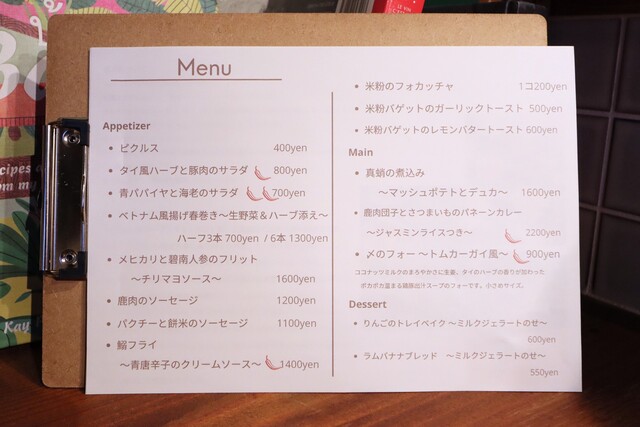 Menu
Appetizer
• ピクルス 400yen
• タイ風ハーブと豚肉のサラダ 800yen
• 青パパイヤと海老のサラダ 700yen
• ベトナム風揚げ春巻き〜生野菜＆ハーブ添え〜
ハーフ3本 700yen / 6本 1300yen
• メヒカリと碧南人参のフリット
〜チリマヨソース〜 1600yen
• 鹿肉のソーセージ 1200yen
• パクチーと餅米のソーセージ 1100yen
• 鰯フライ
〜青唐辛子のクリームソース〜 1400yen
• 米粉のフォカッチャ 1コ200yen
• 米粉バゲットのガーリックトースト 500yen
• 米粉バゲットのレモンバタートースト 600yen
Main
• 真蛸の煮込み
〜マッシュポテトとデュカ〜 1600yen
• 鹿肉団子とさつまいものパネーンカレー
〜ジャスミンライスつき〜 2200yen
• 〆のフォー 〜トムカーガイ風〜 900yen
ココナッツミルクのまろやかさに生姜、タイのハーブの香りが加わった
ポカポカ温まる鶏出汁スープのフォーです。小さめサイズ。
Dessert
• りんごのトレイベイク 〜ミルクジェラートのせ〜
600yen
• ラムバナナブレッド 〜ミルクジェラートのせ〜
550yen
Kay